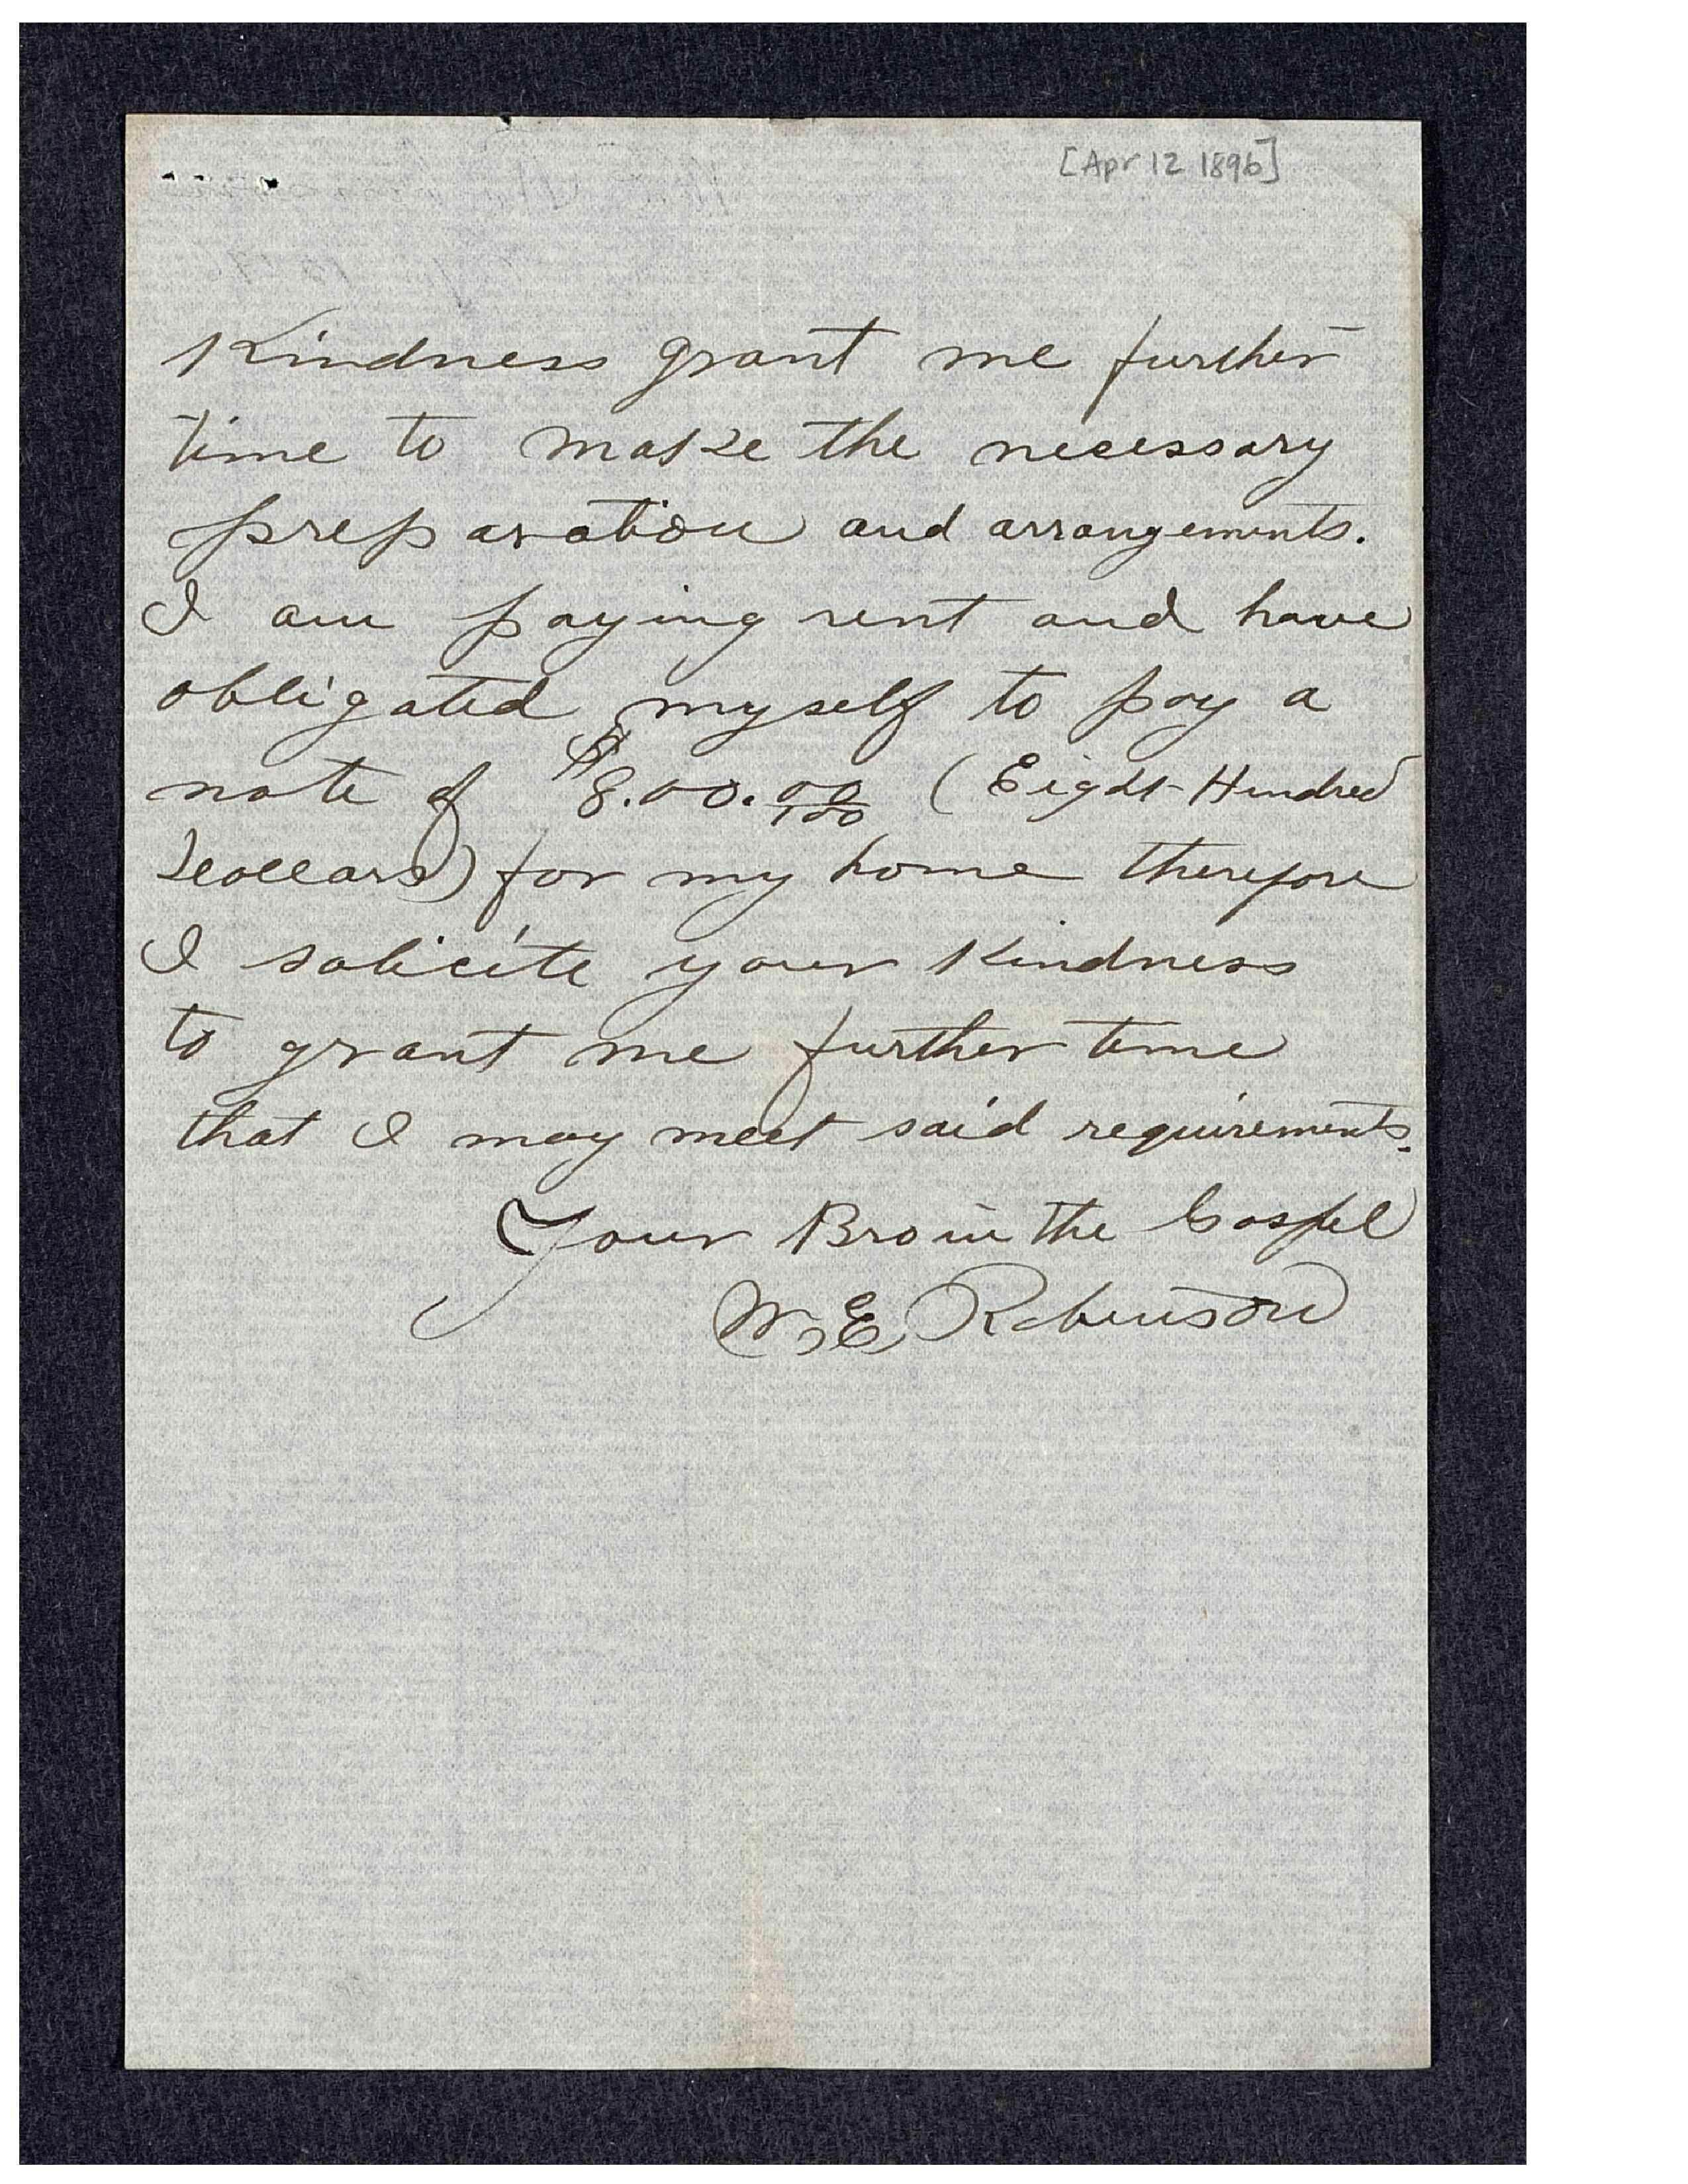 [Apr 12 1896]
Kindness grant me further
time to make the necessary
preparation and arrangements.
I am paying rent and have
obligated myself to pay a
note of $8.00.00/100 (Eight-Hundred
Dollars) for my home therefore
I solicite your Kindness
to grant me further time
that I may meet said requirements.
Your Bro in the Gospel
W. E. Robinson